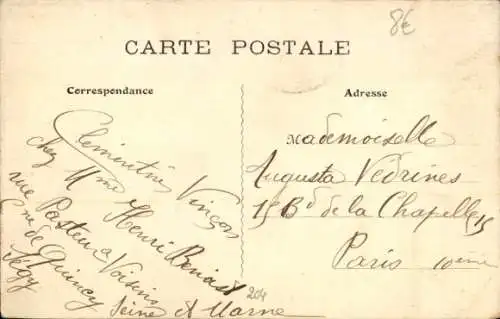 8€
CARTE POSTALE
Correspondance
Clementine Vinçon
chez Mme Henri Benoist
rue Pasteur a Voisins
Cne de Quincy
Ségy
Seine et Marne
204
Adresse
Mademoiselle
Augusta Vedrines
15 Bd de la Chapelle 15
Paris 10eme